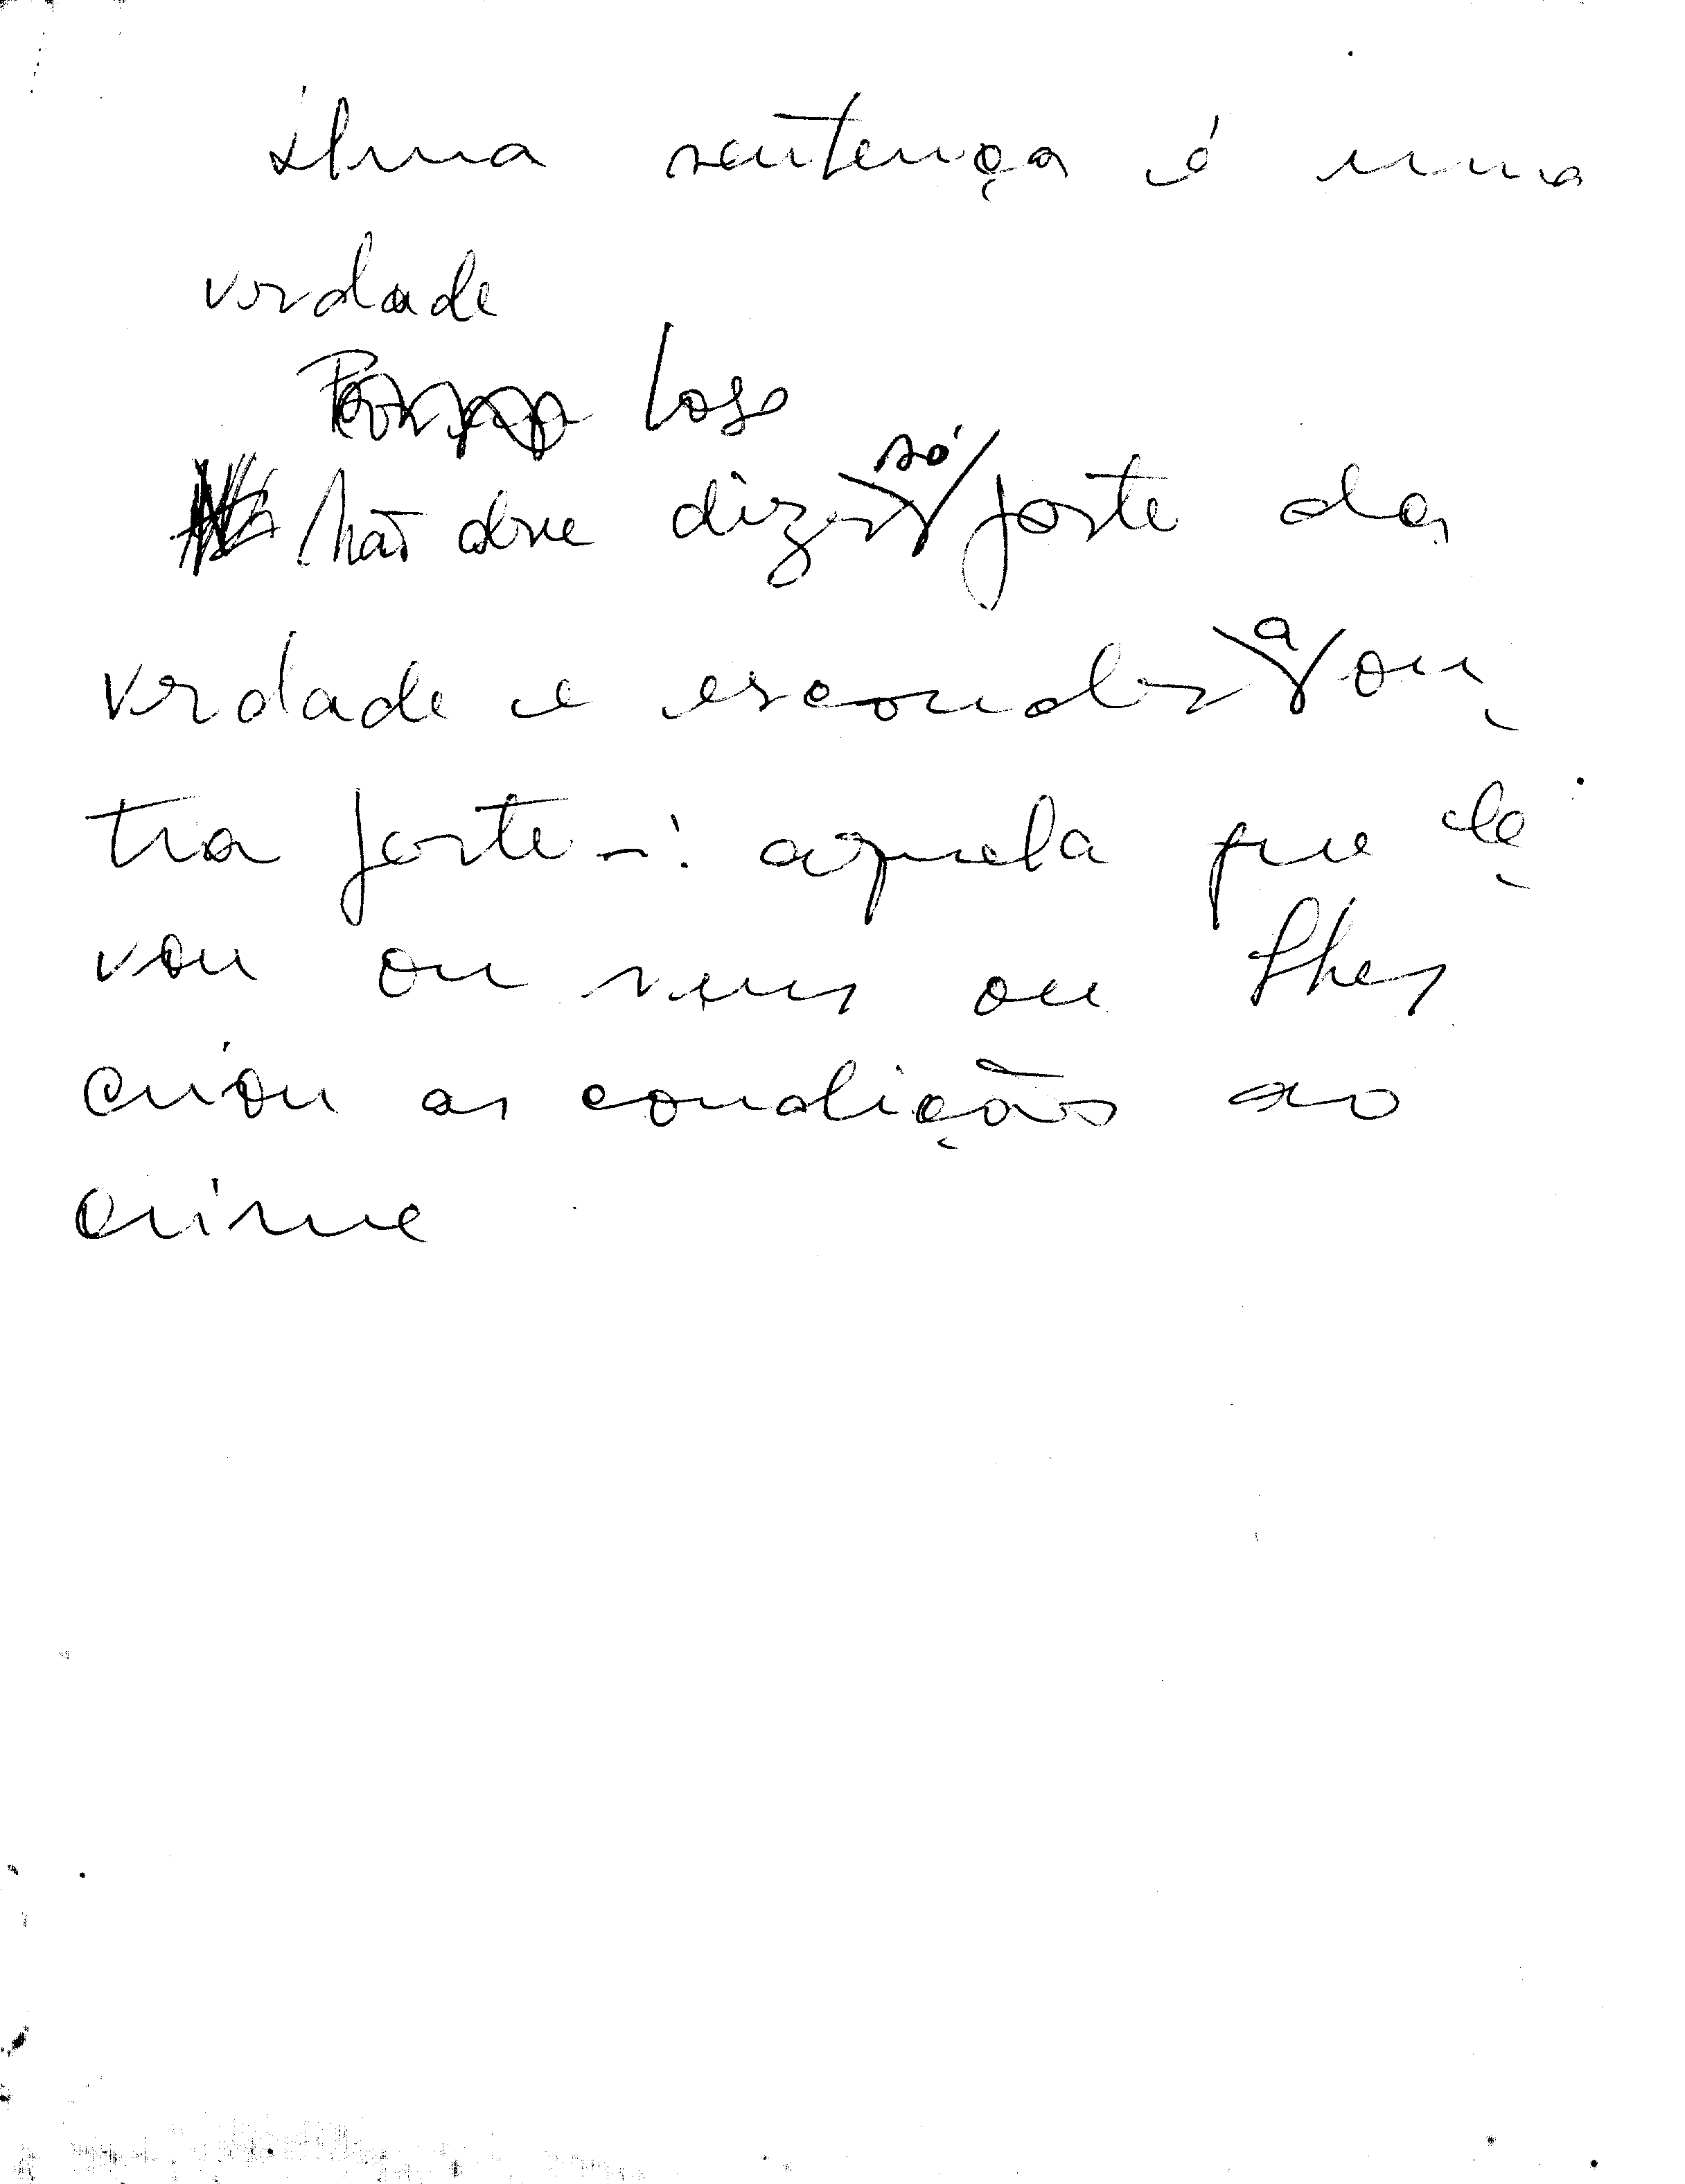 Uma sentença é uma
verdade
Logo
não deve dizer só parte da
verdade e esconder a ou-
tra parte -: aquela que le-
vou ou seus ou lhes
criou as condições ao
crime